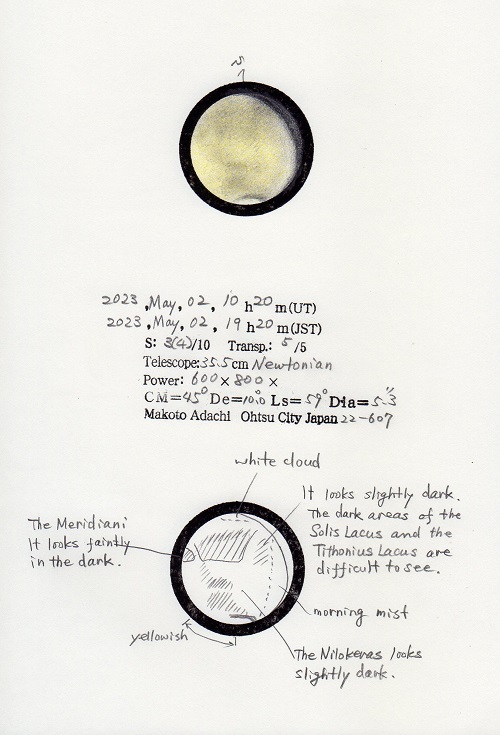 S
2023, May, 02, 10 h 20 m (UT)
2023, May, 02, 19 h 20 m (JST)
S: 3(4)/10 Transp.: 5 /5
Telescope: 35.5 cm Newtonian
Power: 600 × 800 ×
CM=45° De=10.0° Ls=59° Dia=5.3"
Makoto Adachi Ohtsu City Japan 22-607
white cloud
It looks slightly dark.
The dark areas of the
Solis Lacus and the
Tithonius Lacus are
difficult to see.
The Meridiani
It looks faintly
in the dark.
morning mist
yellowish
The Nilokeras looks
slightly dark.